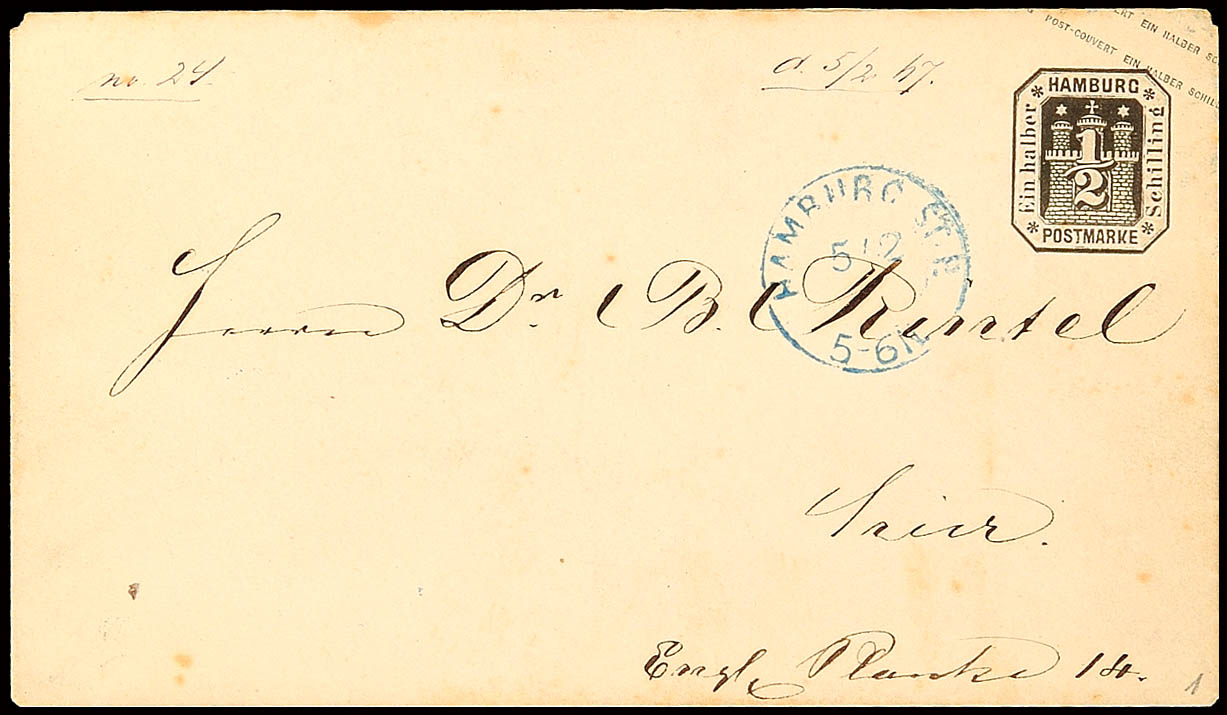 no. 24.
d. 5/2 67.
POST-COUVERT EIN HALBER SCHILL
ERT EIN HALBER SC
HAMBURG
Ein halber
1/2
Schilling
POSTMARKE
HAMBURG ST.P.
5 12
5-6N
Herrn Dr. B. Rintel
hier.
Engl. Planke 18.
1